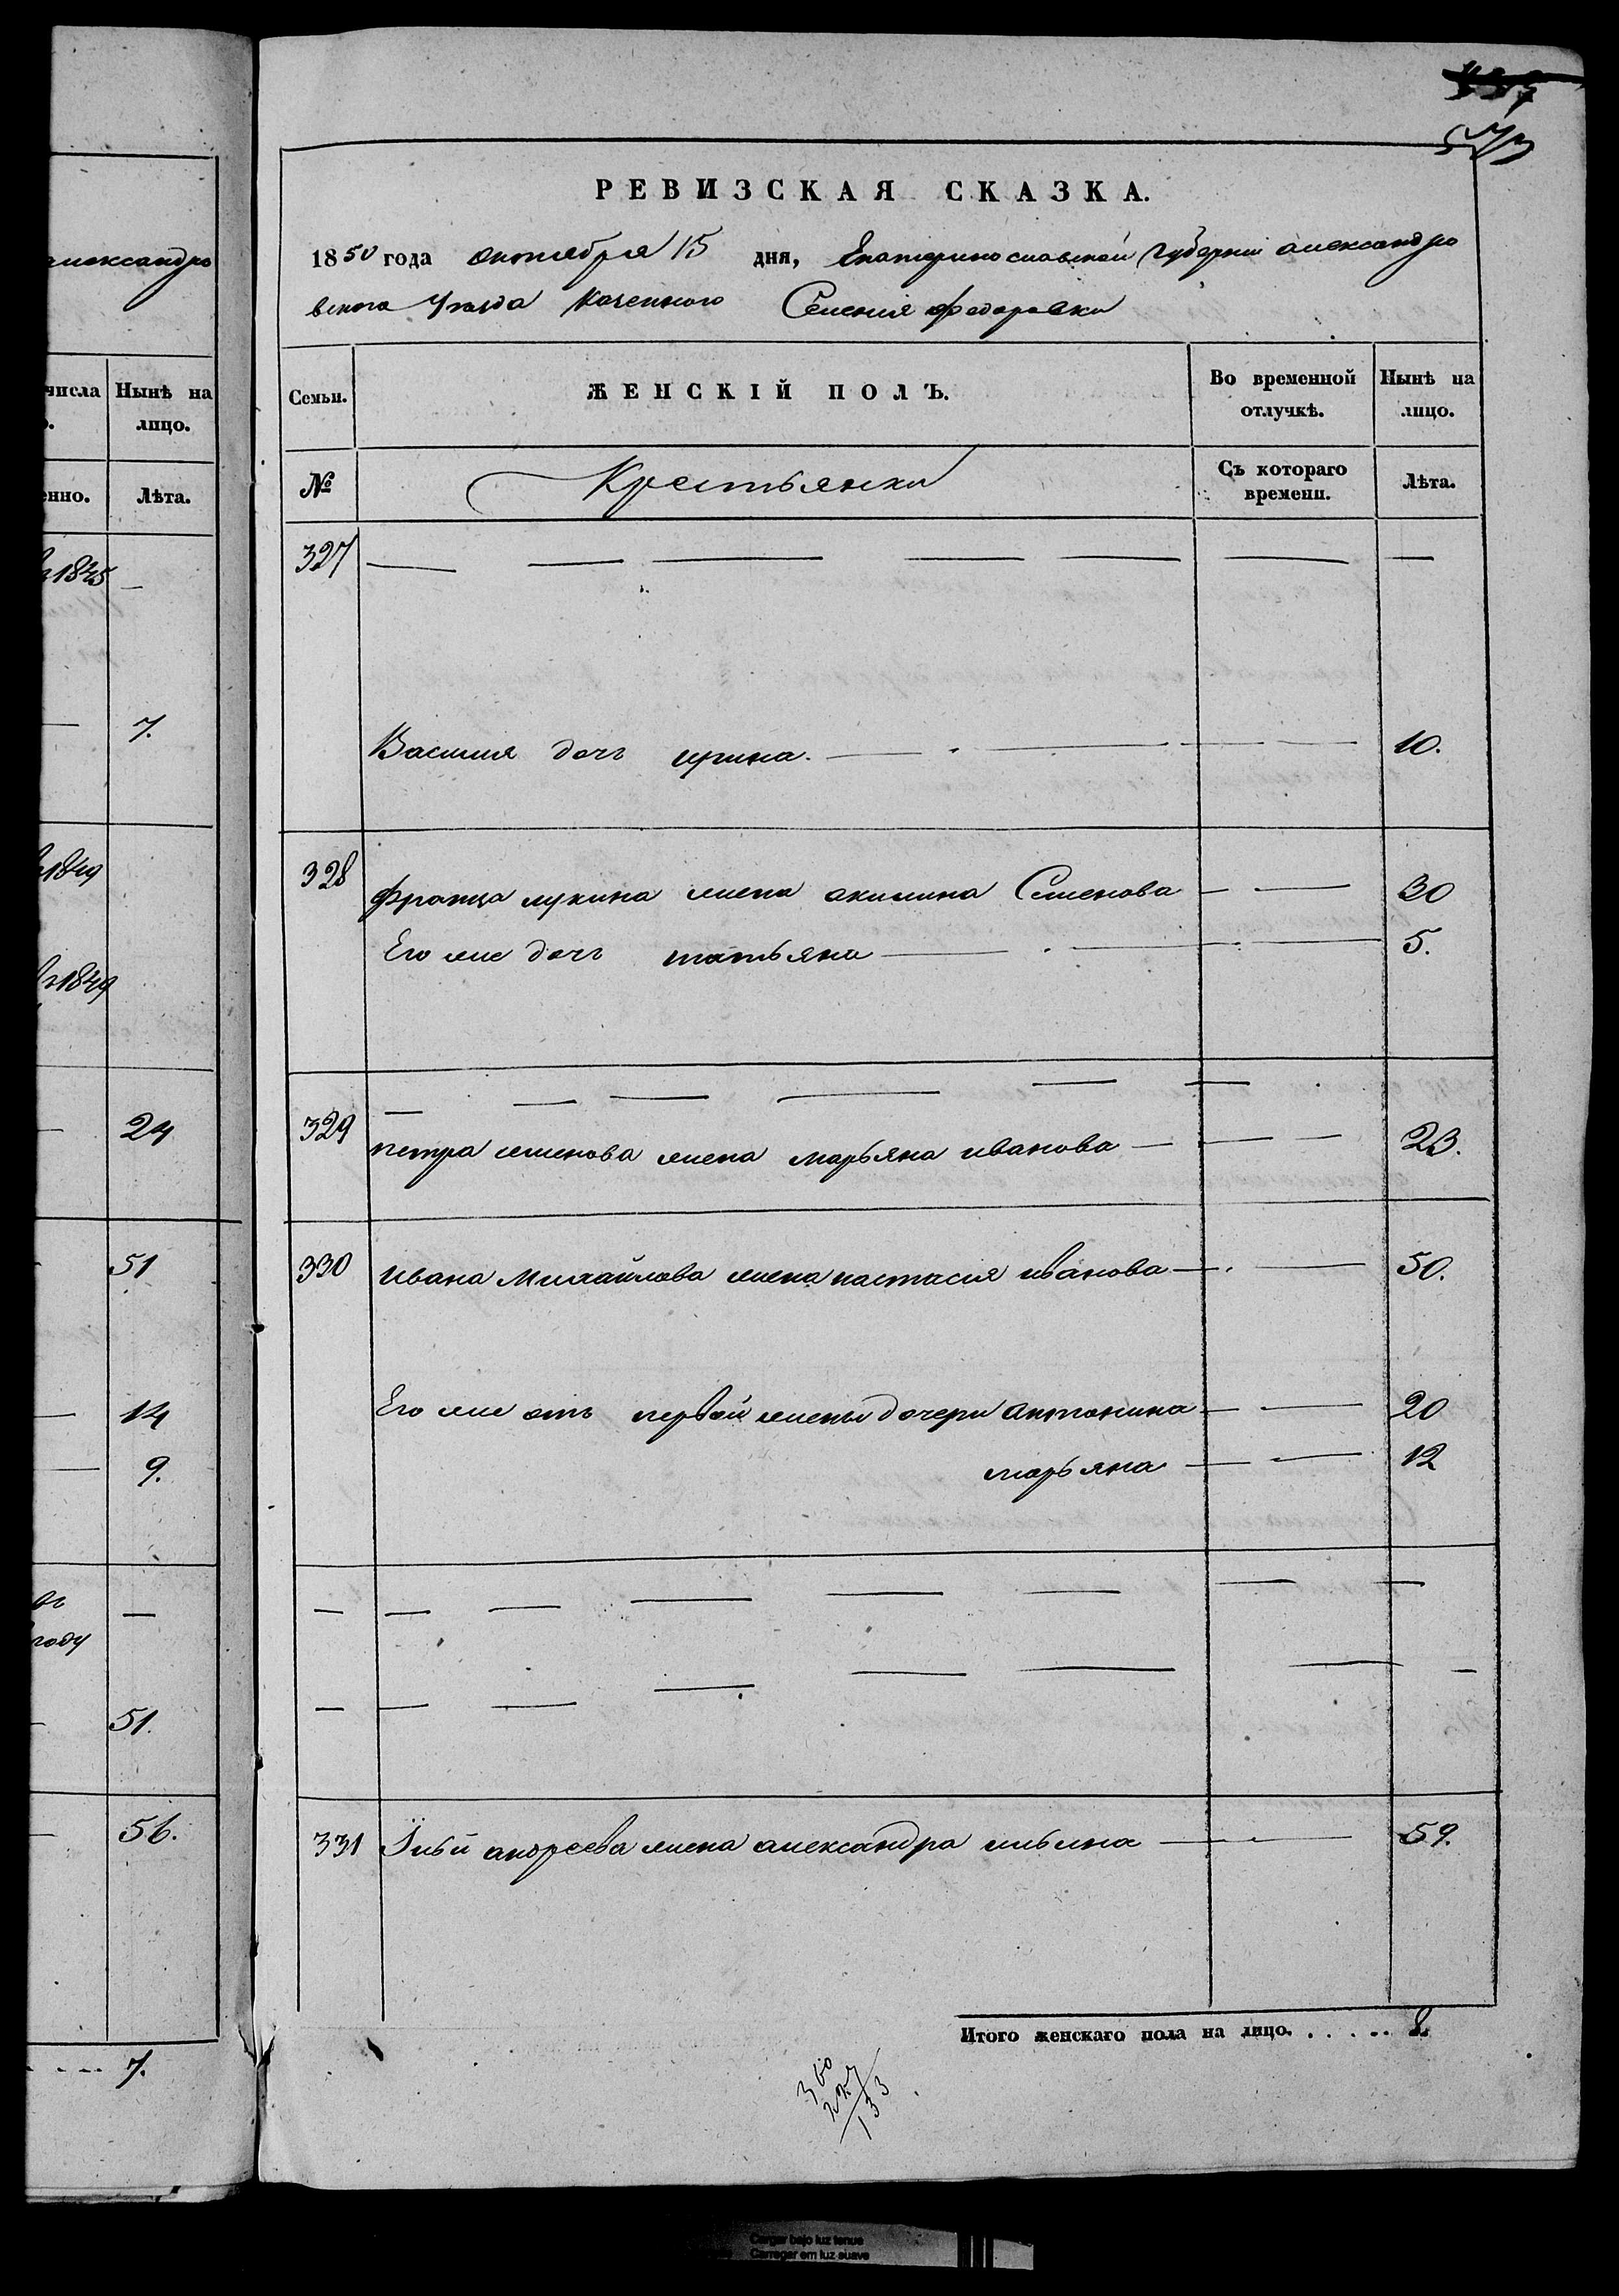 александро
числа Нынѣ на
лицо.
енно. Лѣта.
1845 —
— 7.
1849
1849
— 24
51
— 14
— 9.
году —
51.
— 56.
7.
573
РЕВИЗСКАЯ СКАЗКА.
1850 года октября 15 дня, Екатеринославской Губернии александро
вского Уезда Казенного Селения Федоровки
Семьи. ЖЕНСКІЙ ПОЛЪ. Во временной отлучкѣ. Нынѣ на лицо.
№ Крестьянки Съ котораго времени. Лѣта.
327 — — — — — — —
Василия дочь ирина. — — — — 10.
328 Франца лукина жена акилина Семенова — — 30
Его же дочь татьяна — — — 5.
— — — — — —
329 петра семенова жена марьяна иванова — — — 23.
330 ивана Михайлова жена настасия иванова — — 50.
Его же отъ первой жены дочери антонина — — 20
марьяна — — 12
— — — — — — — —
— — — — — — — —
331 Ильи андреева жена александра ильина — — 59.
Итого женскаго пола на лицо. . . . . . 8.
360
227
133
Cargar bajo luz tenue
Carregar em luz suave